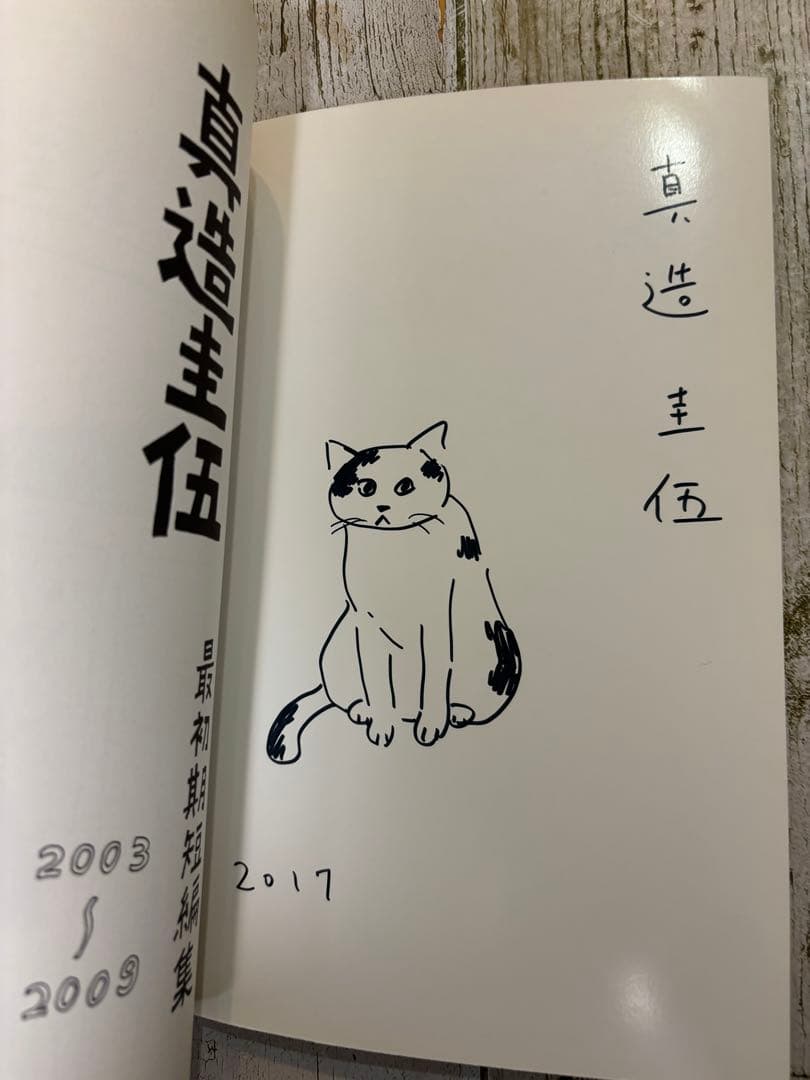 真造圭伍
最初期短編集
2003
〜
2009
真造圭伍
2017